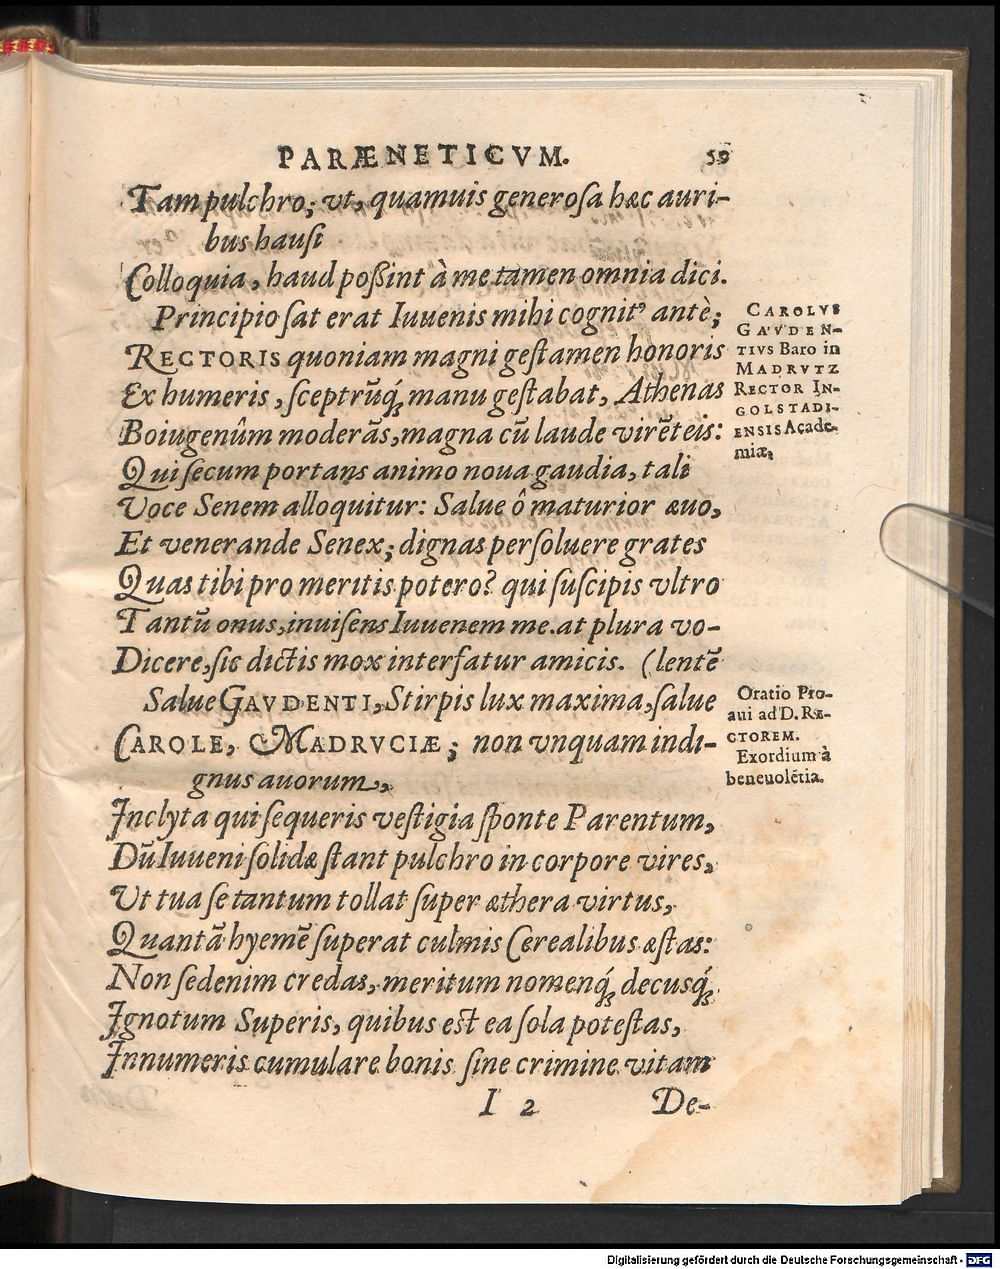 PARÆNETICVM. 59
Tam pulchro; vt, quamuis generoſa hæc auri-
bus hauſi
Colloquia, haud poßint à me tamen omnia dici.
Principio ſat erat Iuuenis mihi cognitꝰ antè;
RECTORIS quoniam magni geſtamen honoris
Ex humeris, ſceptrũq́; manu geſtabat, Athenas
Boiugenûm moderãs, magna cũ laude virẽteis:
Qui ſecum portans animo noua gaudia, tali
Voce Senem alloquitur: Salue ô maturior æuo,
Et venerande Senex; dignas perſoluere grates
Quas tibi pro meritis potero? qui ſuſcipis vltro
Tantũ onus, inuiſens Iuuenem me. at plura vo-
Dicere, ſic dictis mox interfatur amicis. (lentẽ
Salue GAVDENTI, Stirpis lux maxima, ſalue
CAROLE, MADRVCIÆ; non vnquam indi-
gnus auorum,
Inclyta qui ſequeris veſtigia ſponte Parentum,
Dũ Iuueni ſolidæ ſtant pulchro in corpore vires,
Ut tua ſe tantum tollat ſuper æthera virtus,
Quantã hyemẽ ſuperat culmis Cerealibus æſtas:
Non ſedenim credas, meritum nomenq́; decusq́;
Ignotum Superis, quibus eſt ea ſola poteſtas,
Innumeris cumulare bonis ſine crimine vitam
I 2 De-
CAROLVS
GAVDEN-
TIVS Baro in
MADRVTZ
RECTOR IN-
GOLSTADI-
ENSIS Acade-
miæ,
Oratio Pro-
aui ad D. RE-
CTOREM.
Exordium à
beneuolẽtia.
Digitalisierung gefördert durch die Deutsche Forschungsgemeinschaft - DFG